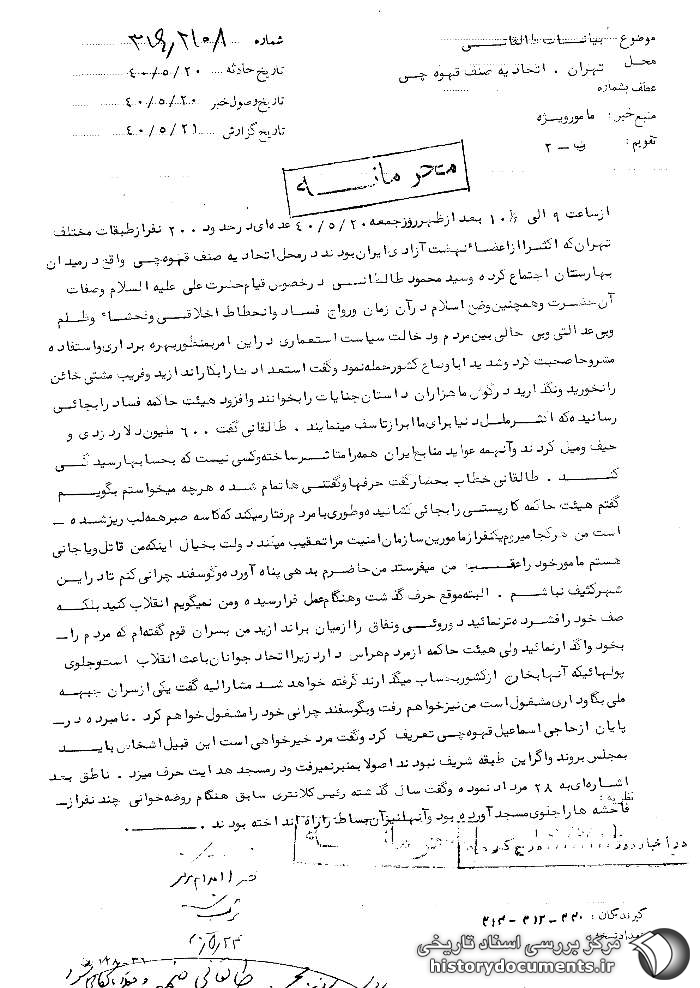 موضوع : بیانات طالقانی
محل : تهران . اتحادیه صنف قهوه چی
عطف بشماره
منبع خبر : مامورویژه
تقویم : ب - ۲
شماره
تاریخ حادثه ۴۰/۵/۲۰
تاریخ وصول خبر ۴۰/۵/۲۰
تاریخ گزارش ۴۰/۵/۲۱
محرمانه
ازساعت ۹ الی ۱۰ بعد ازظهر روزجمعه ۴۰/۵/۲۰ عده ای درحدود ۲۰۰ نفرازطبقات مختلف
تهران که اکثرا ازاعضاء نهضت آزادی ایران بودند درمحل اتحادیه صنف قهوه چی واقع درمیدان
بهارستان اجتماع کرده وسید محمود طالقانی درخصوص قیام حضرت علی علیه السلام وصفات
آن حضرت وهمچنین وضع اسلام درآن زمان ورواج فساد وانحطاط اخلاقی وفحشاء وظلم
وبی عدالتی وبی حالی بین مردم ودخالت سیاست استعماری دراین امربمنظوربهره برداری واستفاده
مشروحا صحبت کرد وشدیدا باوضاع کشورحمله نمود وگفت استعداد شما رابکاراندازید وفریب مشتی خائن
رانخورید ونگذارید درگوش ما هزاران داستان جنایات رابخوانند وافزود هیئت حاکمه فساد رابجائی
رسانیده که اکثر ملل دنیا برای ما ابرازتاسف مینمایند . طالقانی گفت ۶۰۰ ملیون دلار دزدی و
حیف ومیل کردند وآنهمه عواید منابع ایران همه رامتاثر ساخته وکسی نیست که بحسابها رسیدگی
کند . طالقانی خطاب بحضارگفت حرفها وگفتنی ها تمام شده هرچه میخواستم بگویم
گفتم هیئت حاکمه کاریستی رابجائی کشانیده وطوری بامردم رفتارمیکند که کاسه صبرهمه لب ریزشده
است من درکجا میروم یکنفرازمامورین سازمان امنیت مراتعقیب میکند دولت بخیال اینکه من قاتل ویاجانی
هستم مامورخود راعقب من میفرستد من حاضرم بدهی پناه آورده وگوسفند چرانی کنم تادراین
شهرکثیف نباشم . البته موقع حرف گذشت وهنگام عمل فرارسیده ومن نمیگویم انقلاب کنید بلکه
صف خود رافشرده ترنمائید دوروئی ونفاق راازمیان براندازید من بسران قوم گفته ام که مردم را
بخود واگذارنمائید ولی هیئت حاکمه ازمردم هراس دارد زیرااتحاد جوانان باعث انقلاب است وجلوی
پولهائیکه آنها بخارج ازکشوربحساب میگذارند گرفته خواهد شد مشارالیه گفت یکی ازسران جبهه
ملی بگاوداری مشغول است من نیزخواهم رفت وبگوسفند چرانی خود رامشغول خواهم کرد . نامبرده در
پایان ازحاجی اسماعیل قهوه چی تعریف کرد وگفت مرد خیرخواهی است این قبیل اشخاص باید
بمجلس بروند واگراین طبقه شریف نبودند اصولا بمنبرنمیرفت ودرمسجد هدایت حرف میزد . ناطق بعد
اشاره ای به ۲۸ مرداد نموده وگفت سال گذشته رئیس کلانتری سابق هنگام روضه خوانی چند نفراز
فاحشه هاراجلوی مسجد آورده بود وآنها نیزآن بساط راراه انداخته بودند .
نظریه :
گیرندگان : ۳۲۰ - ۳۱۲
مرکز بررسی اسناد تاریخی
historydocuments.ir